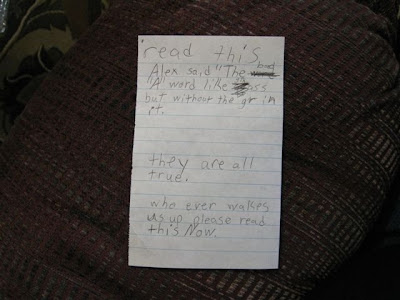 read this
Alex said "The bad
"A" word like ass
but without the gr in
it.
they are all
true.
who ever walkes
us up please read
this Now.